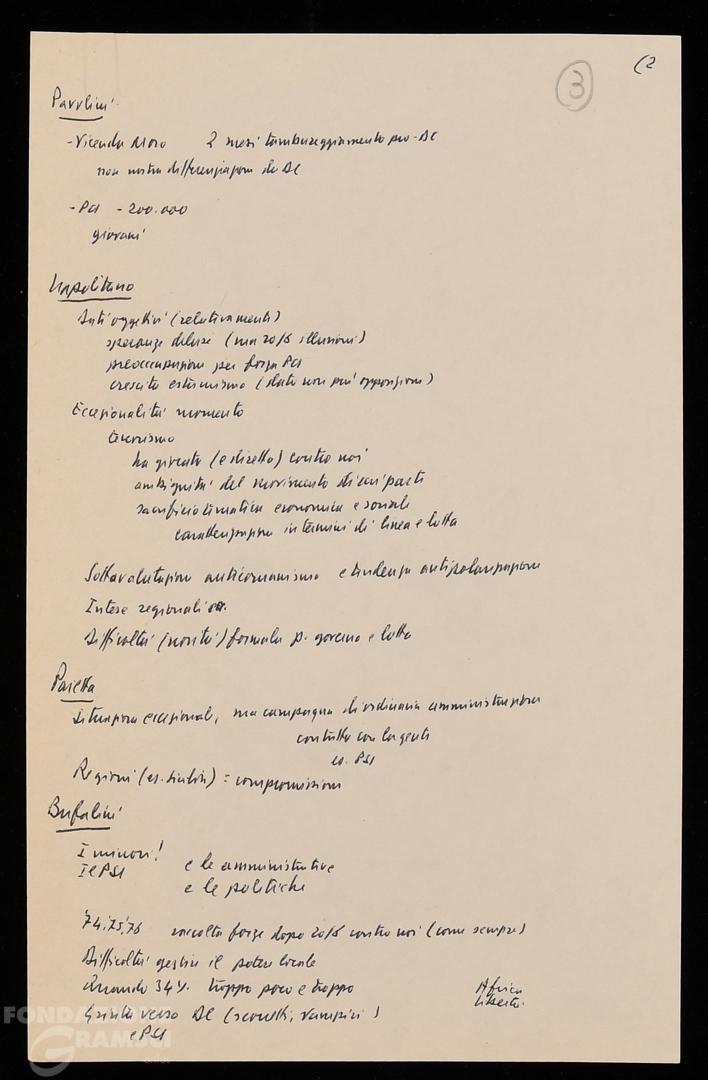 3
(2
Pavolini
- Vicenda Moro 2 mesi tambureggiamento pro-DC
non nostra differenziazione da DC
- PCI - 200.000
giovani
Napolitano
Dati oggettivi (relativamente)
speranze deluse (ma 20/6 illusioni)
preoccupazioni per forza PCI
crescita estremismo (dato non più opposizione)
Eccezionalità momento
terrorismo
ha giocato (e diretto) contro noi
ambiguità del movimento di cui parti
sacrificio tematica economica e sociale
caratterizzazione in termini di linea e lotta
Sottovalutazione anticomunismo e tendenza antipolarizzazione
Intese regionali
Difficoltà (novità) formula p. governo e lotta
Pajetta
Situazione eccezionale, ma campagna di ordinaria amministrazione
contatto con la gente
es. PSI
Regioni (es. Sicilia) = compromissioni
Bufalini
I minori!
Il PSI e le amministrative
e le politiche
'74, '75, '76 raccolta forze dopo 20/6 contro noi (come sempre)
Difficoltà gestire il potere locale
Quando 34% troppo poco e troppo
Africa
Libertà
Grinta verso DC (scrocchi, rampini)
e PSI
FONDAZIONE
GRAMSCI